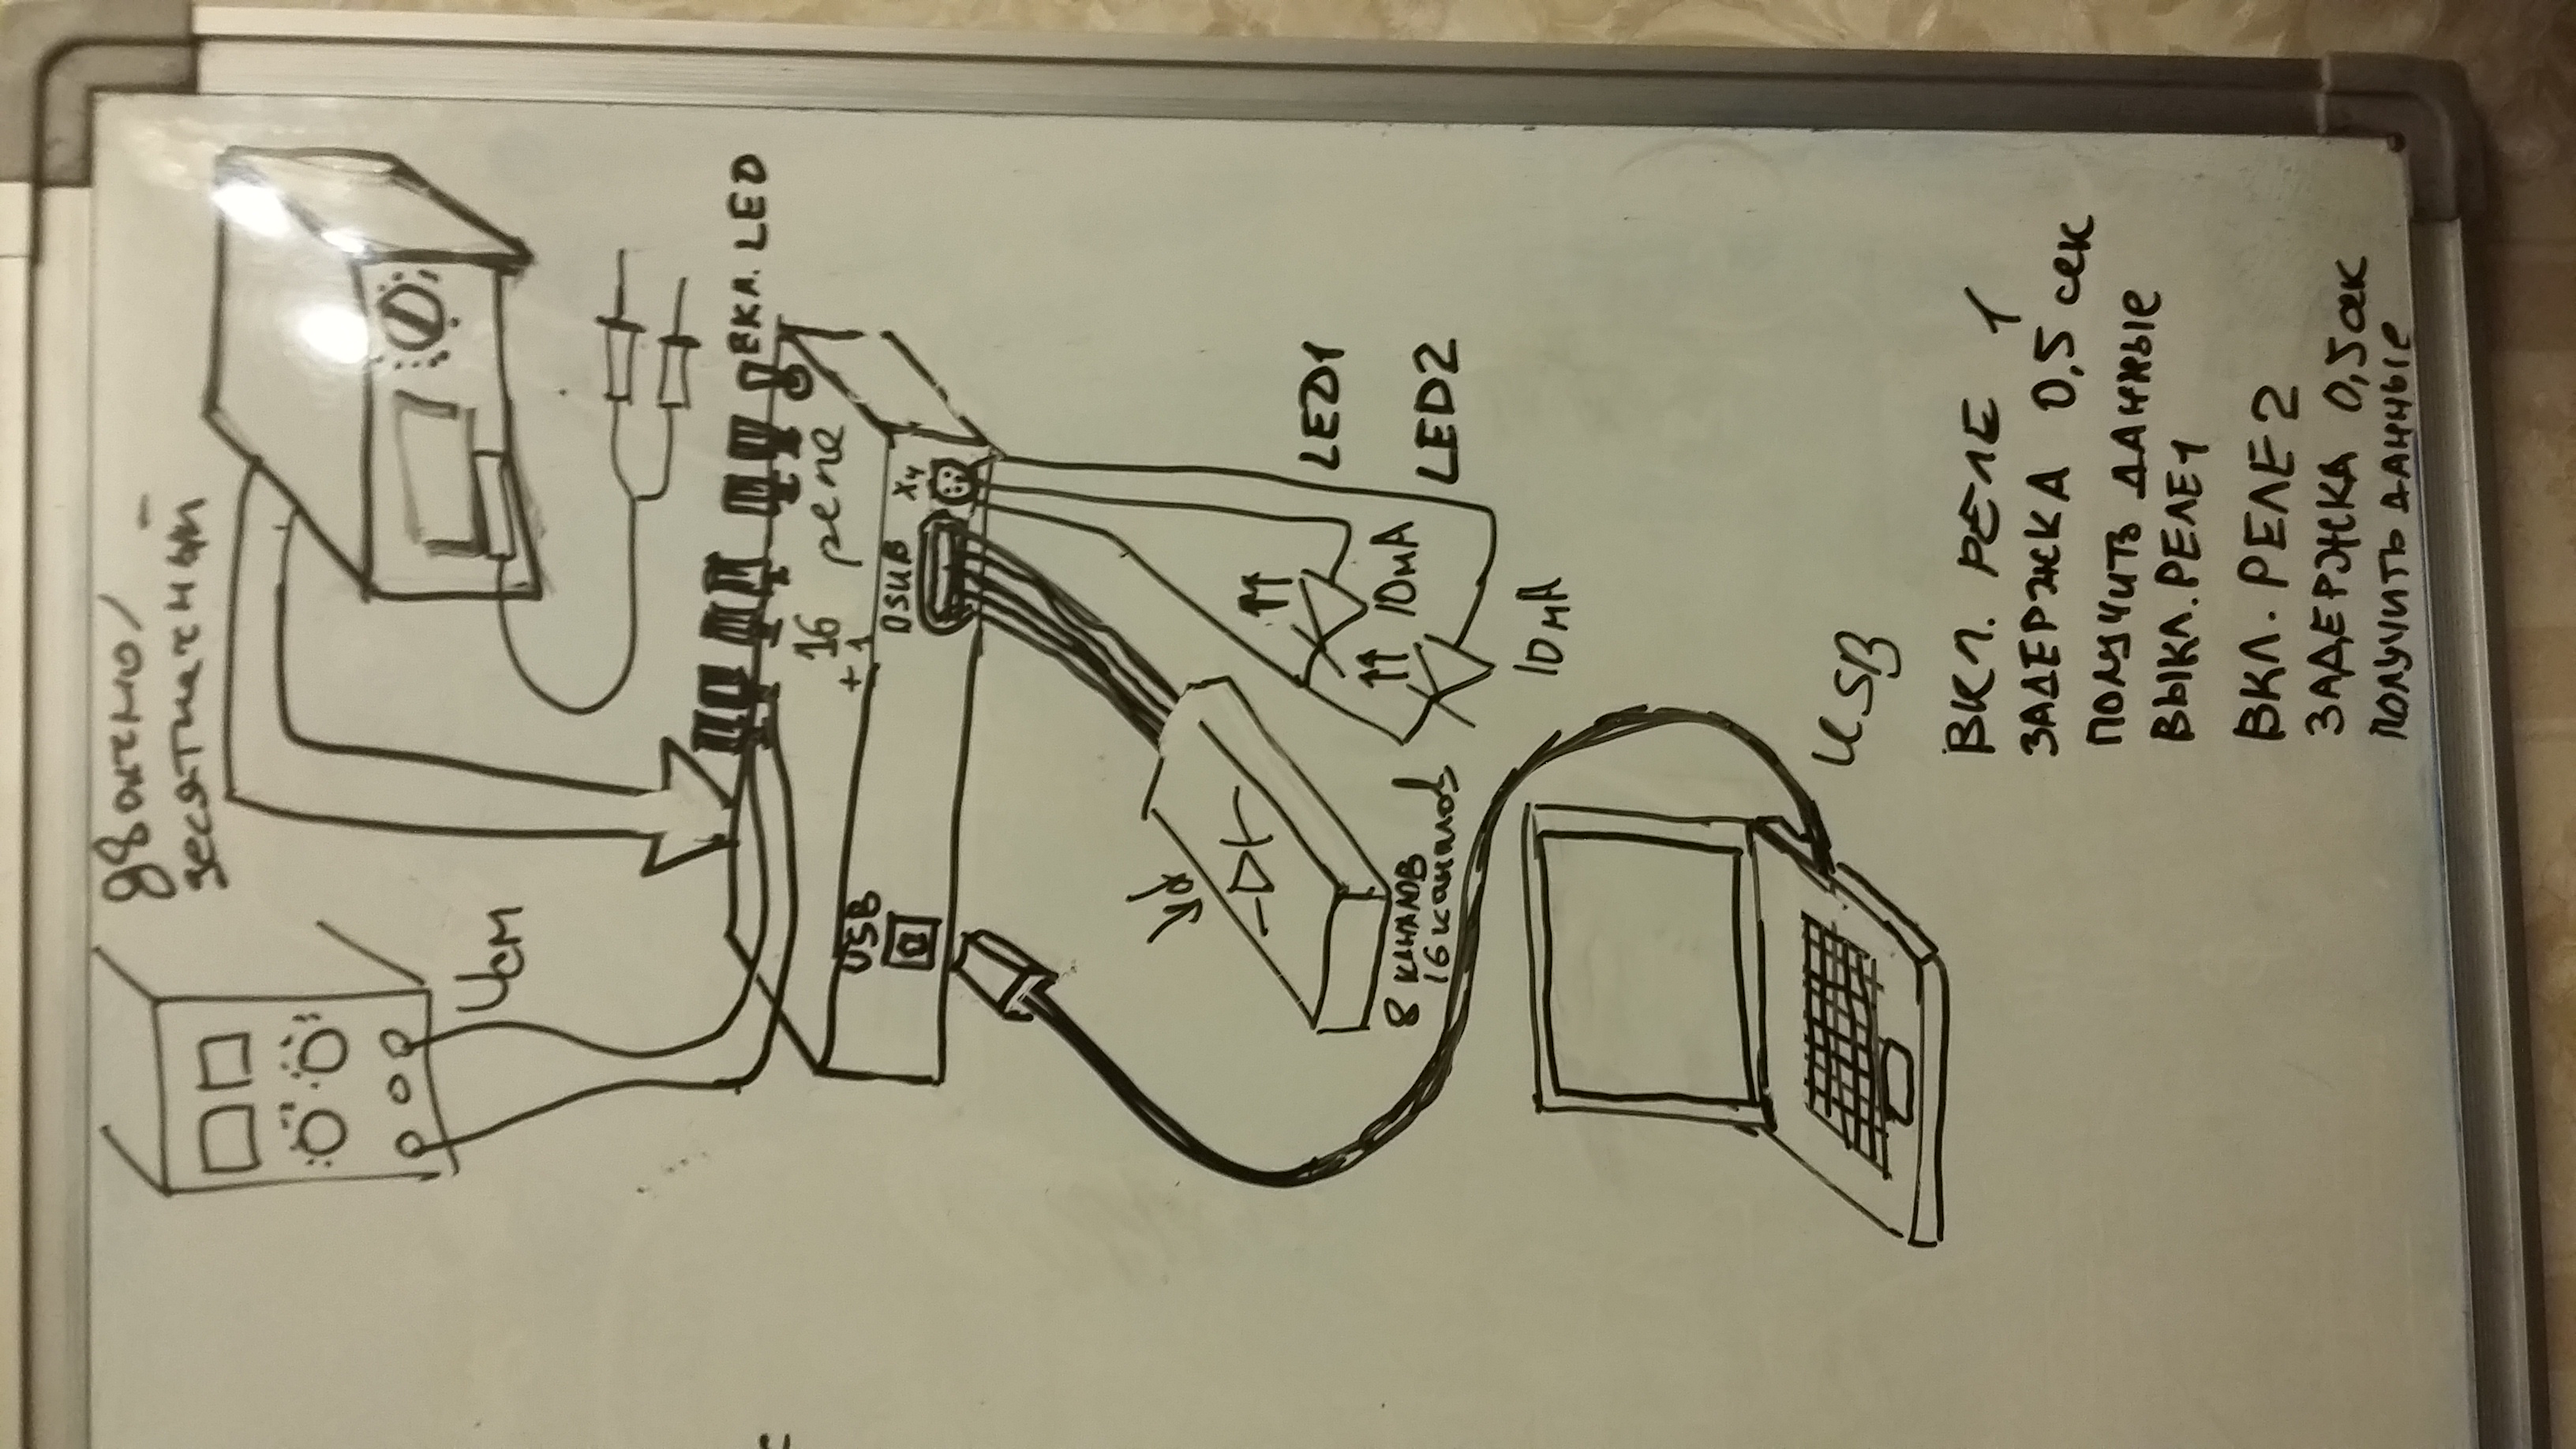 двоично/
десятичный
Uсм
ВКЛ. LED
16 реле
+ 1
USB
DSUB
X4
8 каналов
16 каналов
LED1
10мА
LED2
10мА
USB
ВКЛ. РЕЛЕ 1
ЗАДЕРЖКА 0,5 сек
ПОЛУЧИТЬ ДАННЫЕ
ВЫКЛ. РЕЛЕ1
ВКЛ. РЕЛЕ2
ЗАДЕРЖКА 0,5 сек
ПОЛУЧИТЬ ДАННЫЕ